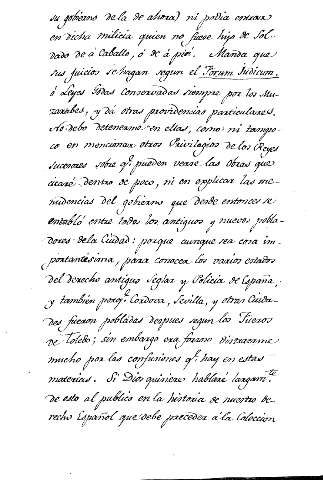 su gobierno de la de ahora) ni podia entrar
en dicha milicia quien no fuese hijo de Sol-
dado de á Caballo, ó de á pie. Manda que
sus juicios se hagan segun el Forum Iudicum,
ó Leyes Godas conservadas siempre por los Mu-
zarabes, y dá otras providencias particulares.
No debo detenerme en ellas, como ni tampo-
co en mencionar otros Privilegios de los Reyes
sucesores sobre q.e pueden verse las Obras que
citaré dentro de poco, ni en explicar las me-
nudencias del gobierno que desde entonces se
entabló entre todos los antiguos y nuevos pobla-
dores de la Ciudad: porque aunque sea cosa im-
portantísima, para conocer los varios estados
del derecho antiguo Seglar y Policia de España,
y también porq.e Cordova, Sevilla, y otras Ciuda-
des fueron pobladas despues segun los Fueros
de Toledo; sin embargo era forzoso distraerme
mucho por las confusiones q.e hay en estas
materias. Si Dios quisiere hablaré largam.te
de esto al publico en la historia de nuestro De-
recho Español que debe preceder á la Coleccion